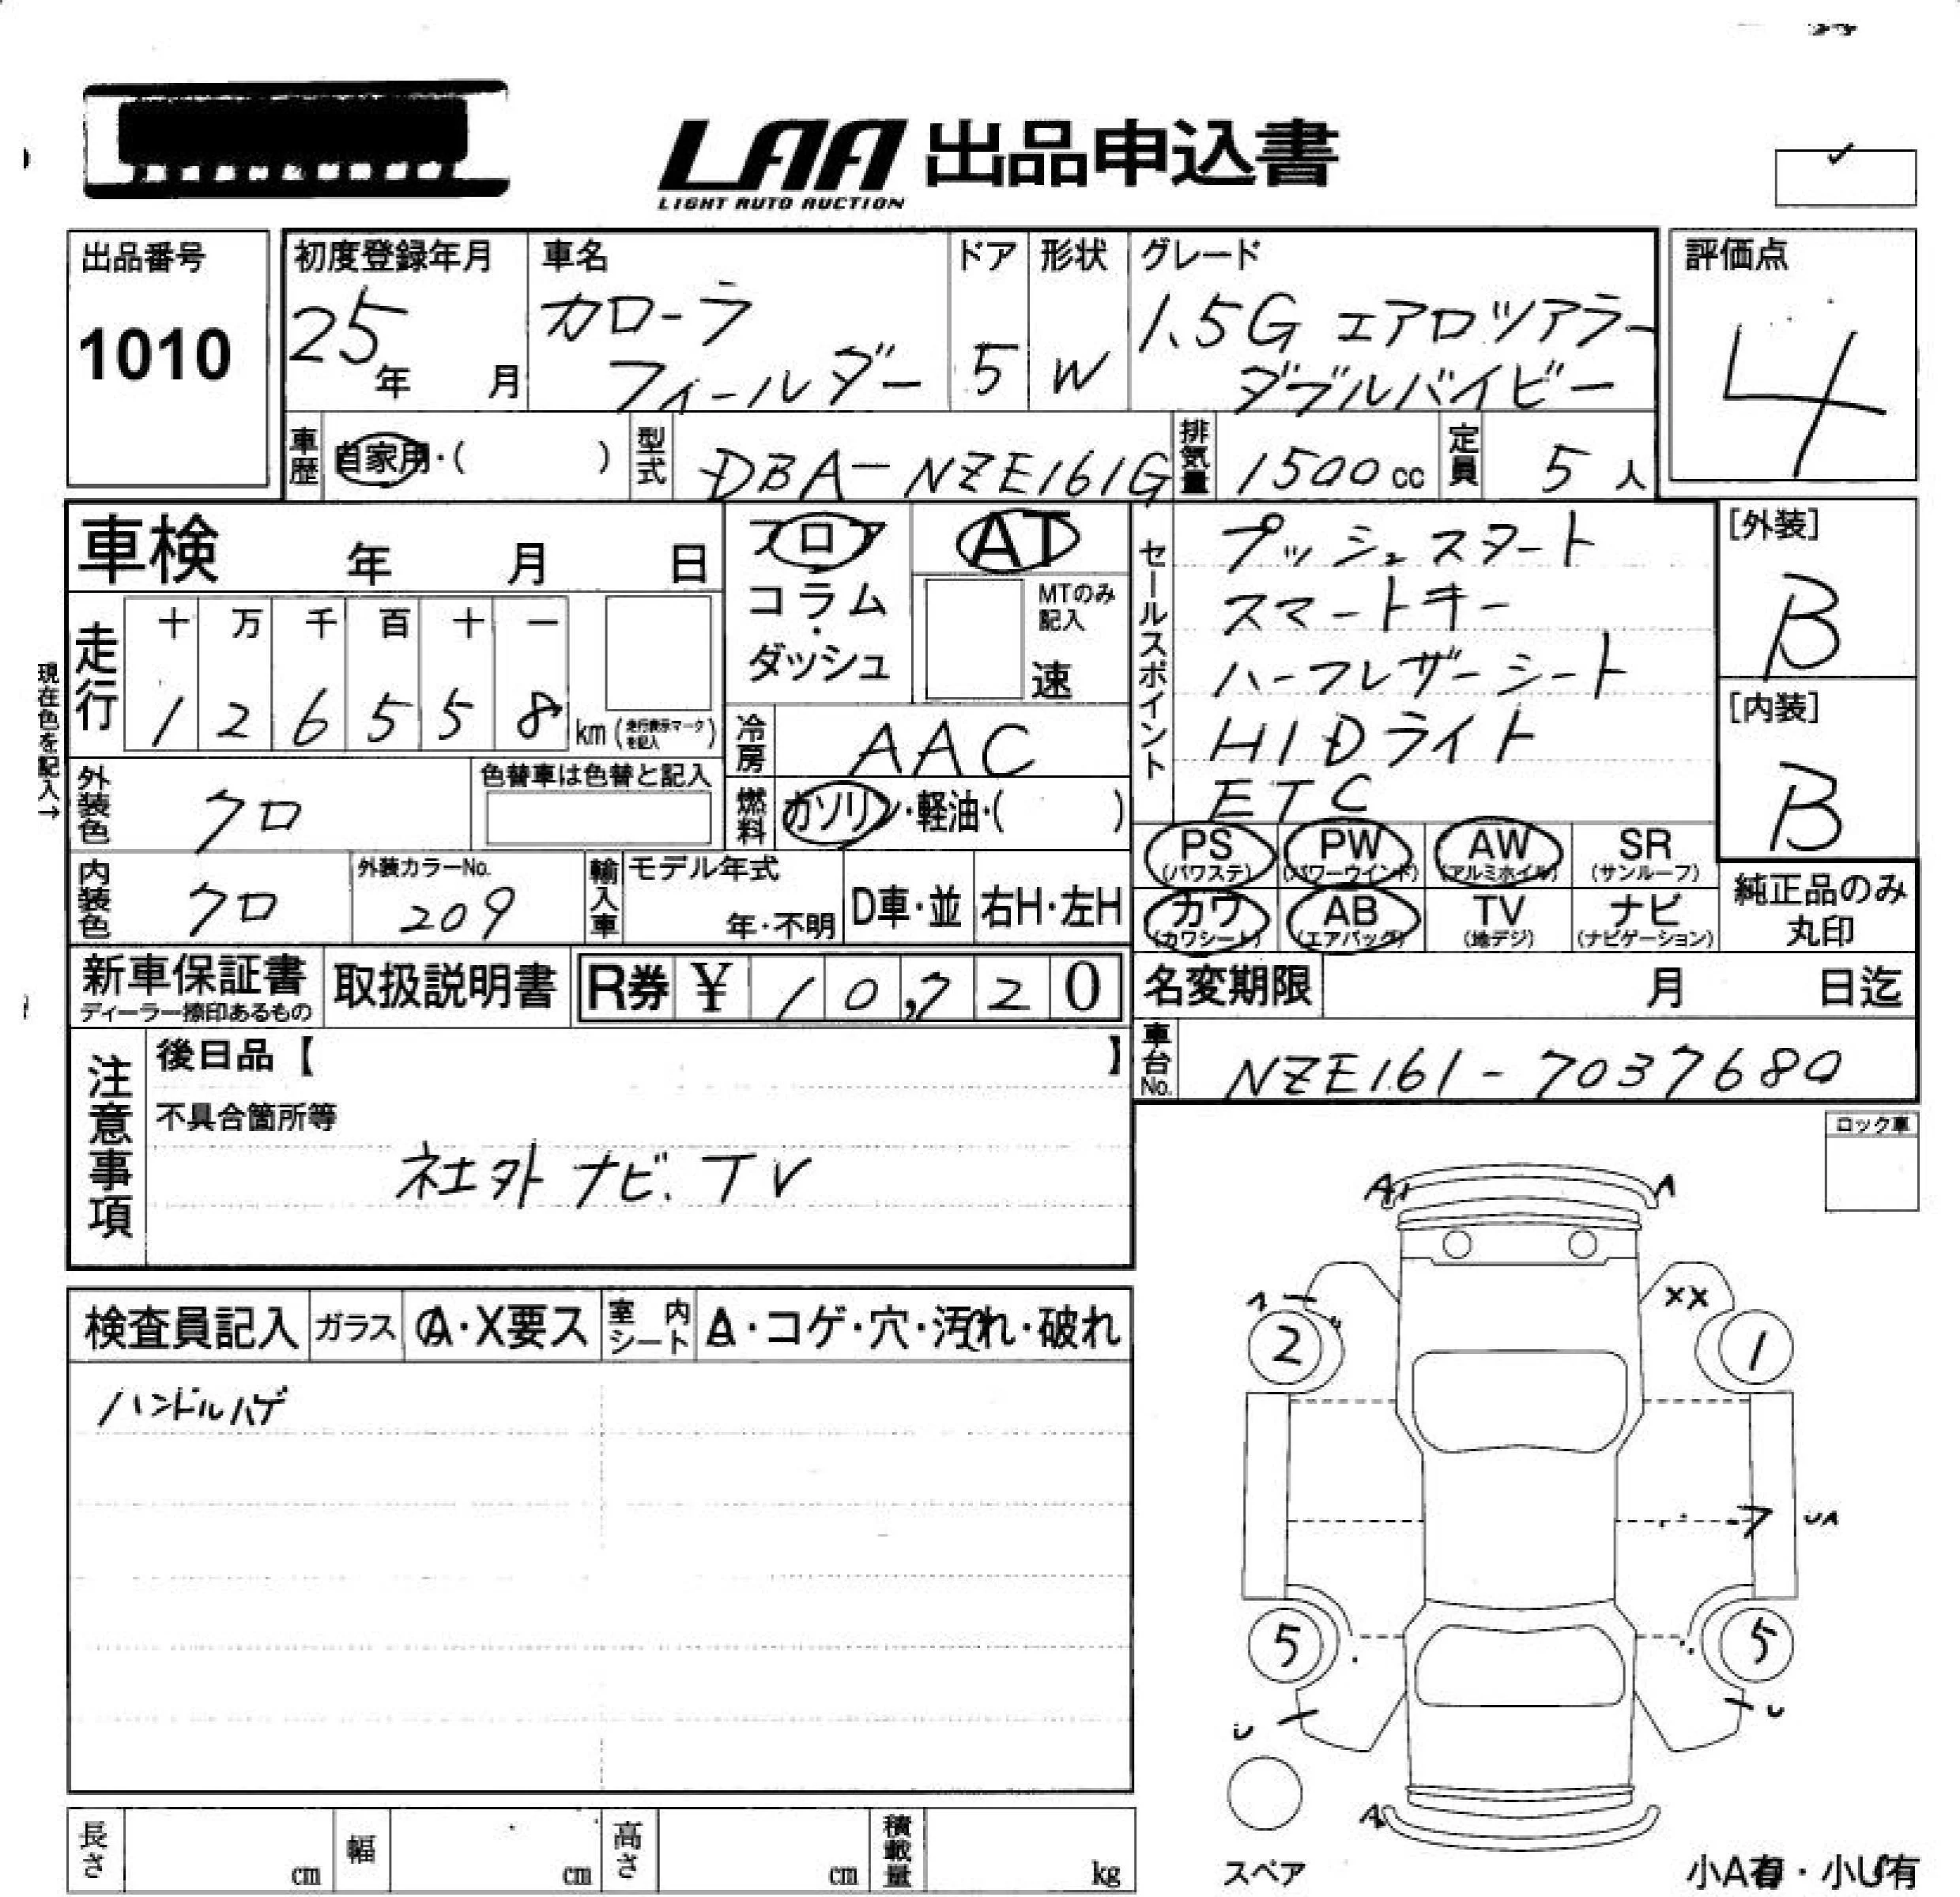 LAA 出品申込書
LIGHT AUTO AUCTION
出品番号
1010
初度登録年月
25年 月
車名
カローラ
フィールダー
ドア
5
形状
W
グレード
1.5G エアロツアラー
ダブルバイビー
評価点
4
車歴 自家用・( )
型式 DBA-NZE161G
排気量 1500cc
定員 5人
車検 年 月 日
フロア
コラム
・
ダッシュ
AT
MTのみ
記入
速
走行
十 万 千 百 十 一
1 2 6 5 5 8 km (走行表示マークを記入)
現在色を記入→
冷房 AAC
燃料 ガソリン・軽油・( )
外装色 クロ
色替車は色替と記入
内装色 クロ
外装カラーNo.
209
輸入車
モデル年式
年・不明
D車・並
右H・左H
セールスポイント
プッシュスタート
スマートキー
ハーフレザーシート
HIDライト
ETC
[外装]
B
[内装]
B
PS (パワステ)
PW (パワーウインド)
AW (アルミホイル)
SR (サンルーフ)
カワ (カワシート)
AB (エアバッグ)
TV (地デジ)
ナビ (ナビゲーション)
純正品のみ
丸印
新車保証書
ディーラー捺印あるもの
取扱説明書
R券 ¥ 10,720
名変期限 月 日迄
車台No. NZE161-7037680
注意事項
後日品【 】
不具合箇所等
社外ナビ.TV
ロック車
検査員記入
ガラス A・X要ス
室内シート A・コゲ・穴・汚れ・破れ
ハンドルハゲ
A A
XX
2 1
7 UA
5 5
U U
A
スペア
小A有・小U有
長さ cm
幅 cm
高さ cm
積載量 kg